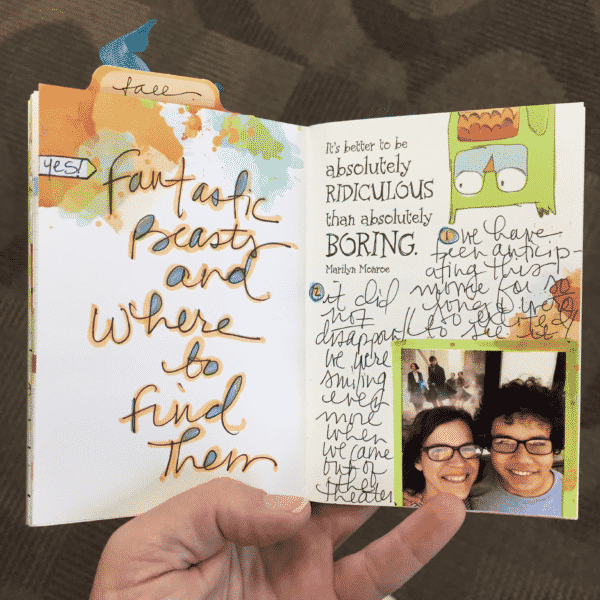 yes!
Fantastic
Beasts
and
Where
to
Find
Them
It's better to be
absolutely
RIDICULOUS
than absolutely
BORING.
Marilyn Monroe
1 we have
been anticip-
ating this
movie for so
long & were
so excited
to see it
2 it did
not
disappoint
we were
smiling
even
more
when
we came
out of
the
theater.